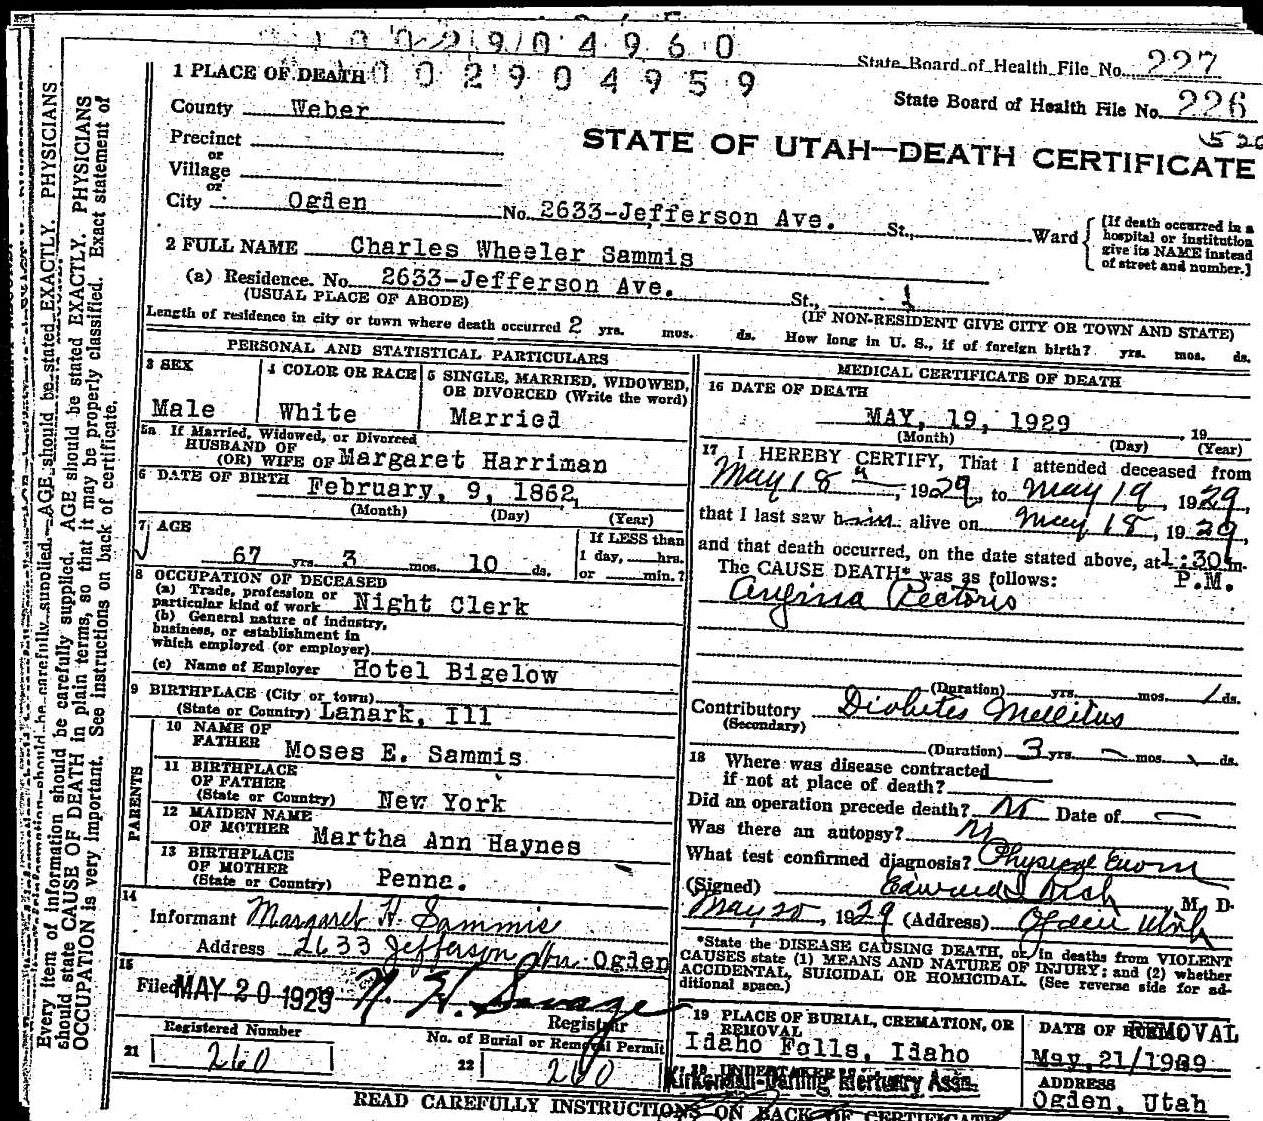 1002904960
State Board of Health File No. 227
1 PLACE OF DEATH 1002904959
State Board of Health File No. 226
County Weber
STATE OF UTAH—DEATH CERTIFICATE
Precinct
or
Village
or
City Ogden No. 2633-Jefferson Ave. St., Ward
(If death occurred in a hospital or institution give its NAME instead of street and number.)
2 FULL NAME Charles Wheeler Sammis
(a) Residence. No. 2633-Jefferson Ave. St.,
(USUAL PLACE OF ABODE) (IF NON-RESIDENT GIVE CITY OR TOWN AND STATE)
Length of residence in city or town where death occurred 2 yrs. mos. ds. How long in U. S., if of foreign birth? yrs. mos. ds.
PERSONAL AND STATISTICAL PARTICULARS
3 SEX
Male
4 COLOR OR RACE
White
5 SINGLE, MARRIED, WIDOWED,
OR DIVORCED (Write the word)
Married
5a If Married, Widowed, or Divorced
HUSBAND OF
(OR) WIFE OF Margaret Harriman
6 DATE OF BIRTH February, 9, 1862
(Month) (Day) (Year)
7 AGE
67 yrs. 3 mos. 10 ds.
If LESS than
1 day, hrs.
or min.?
8 OCCUPATION OF DECEASED
(a) Trade, profession or
particular kind of work Night Clerk
(b) General nature of industry,
business, or establishment in
which employed (or employer)
(c) Name of Employer Hotel Bigelow
9 BIRTHPLACE (City or town)
(State or Country) Lanark, Ill
PARENTS
10 NAME OF
FATHER Moses E. Sammis
11 BIRTHPLACE
OF FATHER
(State or Country) New York
12 MAIDEN NAME
OF MOTHER Martha Ann Haynes
13 BIRTHPLACE
OF MOTHER
(State or Country) Penna.
14
Informant Margaret H. Sammis
Address 2633 Jefferson Ave Ogden
15
Filed MAY 20 1929 Savage
Registrar
Registered Number
21 260
No. of Burial or Removal Permit
22 260
MEDICAL CERTIFICATE OF DEATH
16 DATE OF DEATH
MAY, 19, 1929, 19
(Month) (Day) (Year)
17 I HEREBY CERTIFY, That I attended deceased from
May 18, 1929, to May 19, 1929,
that I last saw him alive on May 18, 1929,
and that death occurred, on the date stated above, at 1:30 m.
The CAUSE DEATH* was as follows: P.M.
Angina Pectoris
(Duration) yrs. mos. 1 ds.
Contributory Diabetes Mellitus
(Secondary)
(Duration) 3 yrs. mos. ds.
18 Where was disease contracted
if not at place of death?
Did an operation precede death? No Date of
Was there an autopsy? No
What test confirmed diagnosis? Physical Exam
(Signed) Edward I. Rich, M. D.
May 20, 1929 (Address) Ogden Utah
*State the DISEASE CAUSING DEATH, or in deaths from VIOLENT
CAUSES state (1) MEANS AND NATURE OF INJURY; and (2) whether
ACCIDENTAL, SUICIDAL OR HOMICIDAL. (See reverse side for ad-
ditional space.)
19 PLACE OF BURIAL, CREMATION, OR
REMOVAL
Idaho Falls, Idaho
DATE OF REMOVAL
May, 21/1929
20 UNDERTAKER
Kirkendall-Darling Mortuary Assn.
ADDRESS
Ogden, Utah
READ CAREFULLY INSTRUCTIONS ON BACK OF CERTIFICATE
Every item of information should be carefully supplied. AGE should be stated EXACTLY. PHYSICIANS
should state CAUSE OF DEATH in plain terms, so that it may be properly classified. Exact statement of
OCCUPATION is very important. See instructions on back of certificate.